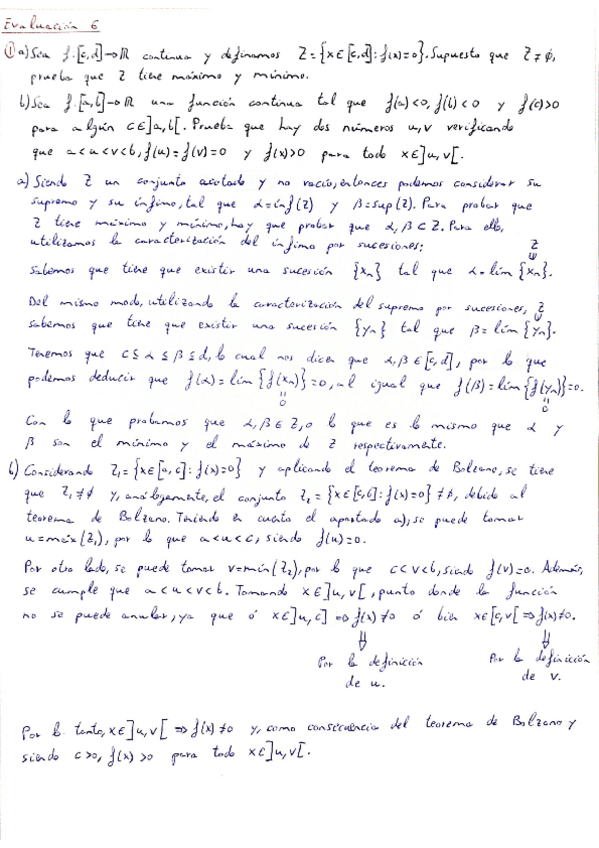 Evaluación 6
① a) Sea f: [c,d] → ℝ continua y definamos Z = {x ∈ [c,d] : f(x) = 0}. Supuesto que Z ≠ ∅,
prueba que Z tiene máximo y mínimo.
b) Sea f: [a,b] → ℝ una función continua tal que f(a) < 0, f(b) < 0 y f(c) > 0
para algún c ∈ ]a,b[. Prueba que hay dos números u, v verificando
que a < u < v < b, f(u) = f(v) = 0 y f(x) > 0 para todo x ∈ ]u,v[.
a) Siendo Z un conjunto acotado y no vacío, entonces podemos considerar su
supremo y su ínfimo, tal que α = inf(Z) y β = sup(Z). Para probar que
Z tiene máximo y mínimo, hay que probar que α, β ⊂ Z. Para ello,
utilizamos la caracterización del ínfimo por sucesiones:
Z
Ψ
Sabemos que tiene que existir una sucesión {xn} tal que α = lim {xn}.
Del mismo modo, utilizando la caracterización del supremo por sucesiones,
Z
Ψ
sabemos que tiene que existir una sucesión {yn} tal que β = lim {yn}.
Tenemos que c ≤ α ≤ β ≤ d, lo cual nos dice que α, β ∈ [c,d], por lo que
podemos deducir que f(α) = lim {f(xn)} = 0, al igual que f(β) = lim {f(yn)} = 0.
= 0 = 0
Con lo que probamos que α, β ∈ Z, o lo que es lo mismo que α y
β son el mínimo y el máximo de Z respectivamente.
b) Considerando Z₁ = {x ∈ [a,c] : f(x) = 0} y aplicando el teorema de Bolzano, se tiene
que Z₁ ≠ ∅ y, análogamente, el conjunto Z₂ = {x ∈ [c,b] : f(x) = 0} ≠ ∅, debido al
teorema de Bolzano. Teniendo en cuenta el apartado a), se puede tomar
u = máx(Z₁), por lo que a < u < c, siendo f(u) = 0.
Por otro lado, se puede tomar v = mín(Z₂), por lo que c < v < b, siendo f(v) = 0. Además,
se cumple que a < u < v < b. Tomando x ∈ ]u,v[, punto donde la función
no se puede anular, ya que ó x ∈ ]u,c] ⇒ f(x) ≠ 0 ó bien x ∈ [c,v[ ⇒ f(x) ≠ 0.
⇓ ⇓
Por la definición Por la definición
de u. de v.
Por lo tanto, x ∈ ]u,v[ ⇒ f(x) ≠ 0 y, como consecuencia del teorema de Bolzano y
siendo c > 0, f(x) > 0 para todo x ∈ ]u,v[.